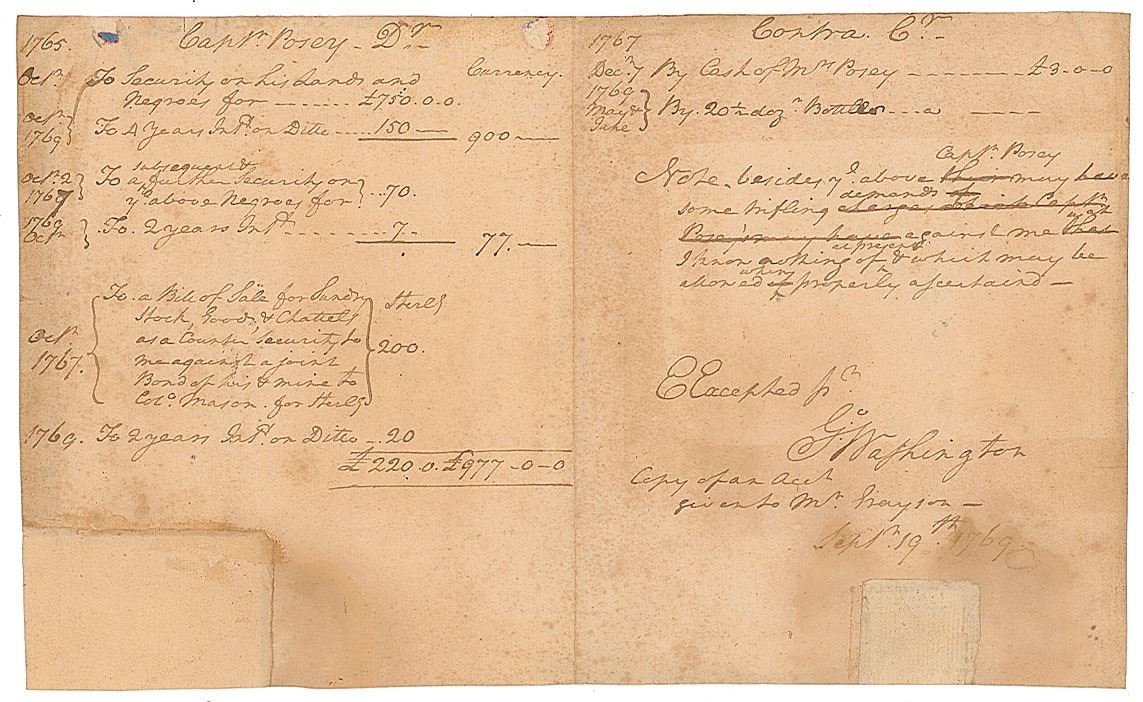 1765. Captn. Posey - Dr.
Currency.
Octr. To Security on his Lands and
Negroes for ------ £750.0.0.
Octr. 1769 To 4 Years Intt. on Ditto ----- 150 — 900 —
Octr. 2 1767 To a subsequent & further Security on
ye above Negroes for -- 70.
1769 Octr. To. 2 years Intt. ------- 7 - 77. —
Octr. 1767. To. a Bill of Sale for Sundry Sterlg
Stock, Goods, & Chattels
as a Counter Security to
me against a joint 200.
Bond of his & mine to
Colo. Mason. for Sterlg
1769. To 2 years Intt. on Ditto - 20
£220.0. £977-0-0
1767 Contra. Cr.
Decr. 7 By Cash of Mrs Posey -------- £3-0-0
1769 May & June By. 20½ dozn Bottles --- a ----
Captn. Posey
Note, besides ye. above may have
some trifling demands
against me yt at
I know nothing of at present & which may be
allowed when properly ascertaind —
E Excepted pr.
Go Washington
Copy of an acct
given to Mr Grayson —
Septr. 19th 1769